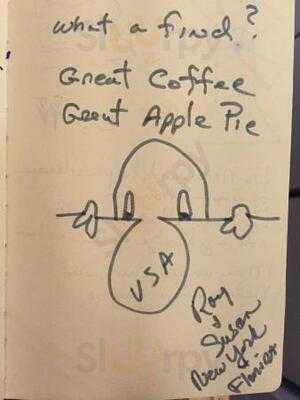 What a find?
Great Coffee
Great Apple Pie
USA
Roy
&
Susan
New York